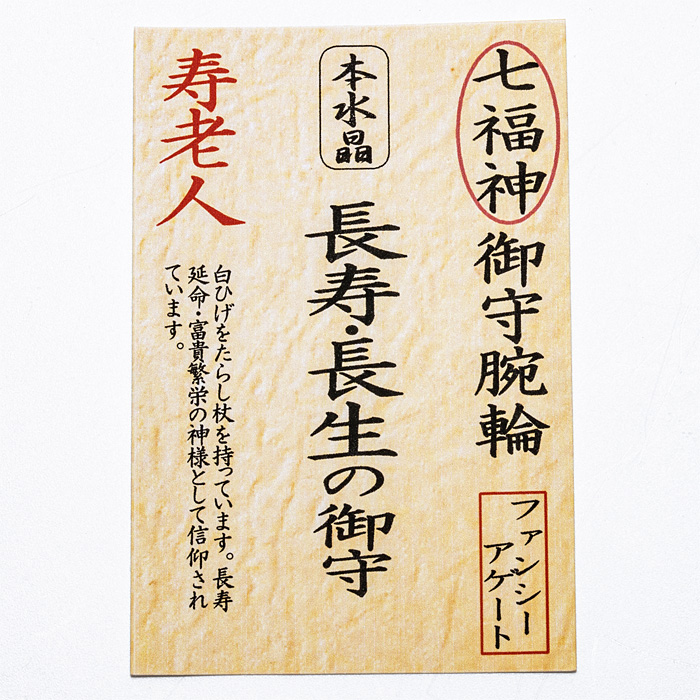 七福神御守腕輪
ファンシー
アゲート
本水晶
長寿・長生の御守
寿老人
白ひげをたらし杖を持っています。長寿
延命・富貴繁栄の神様として信仰され
ています。